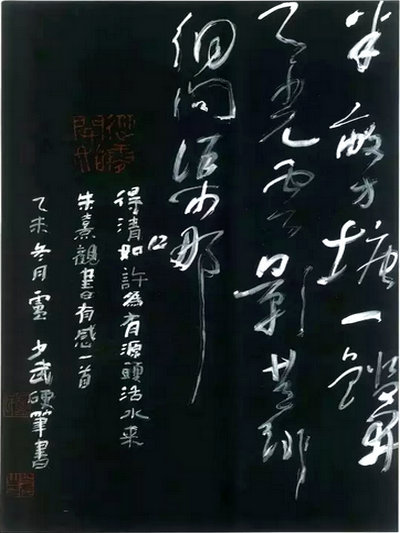 半畝方塘一鑑開
天光雲影共徘
徊问渠那
得清如許為有源頭活水来
朱熹觀書有感一首
乙未冬月靈少武硬筆書